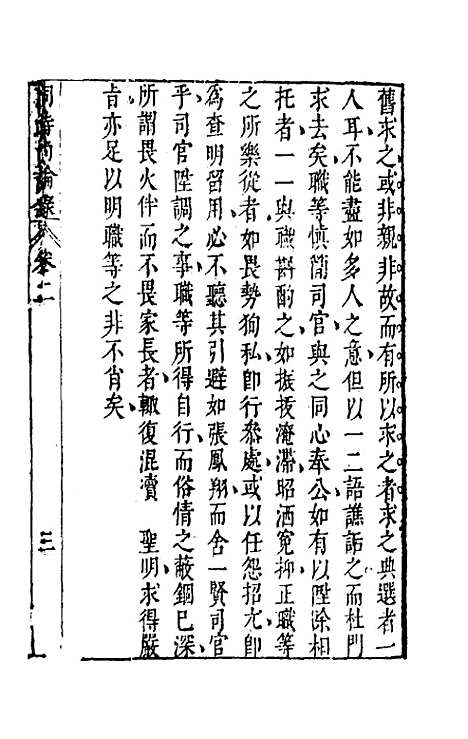 舊求之或非親非故而有所以求之者求之典選者一
人耳不能盡如多人之意但以一二語譙詬之而杜門
求去矣職等慎簡司官與之同心奉公如有以陞除相
托者一一與職斟酌之如振拔淹滯昭洒寃抑正職等
之所樂從者如畏勢狥私卽行叅處或以任怨招尤卽
為查明留用必不聽其引避如張鳳翔而舍一賢司官
乎司官陞調之事職等所得自行而俗情之蔽錮已深
所謂畏火伴而不畏家長者輙復混瀆　聖明求得嚴
旨亦足以明職等之非不肖矣
同時尚論錄　卷二　三